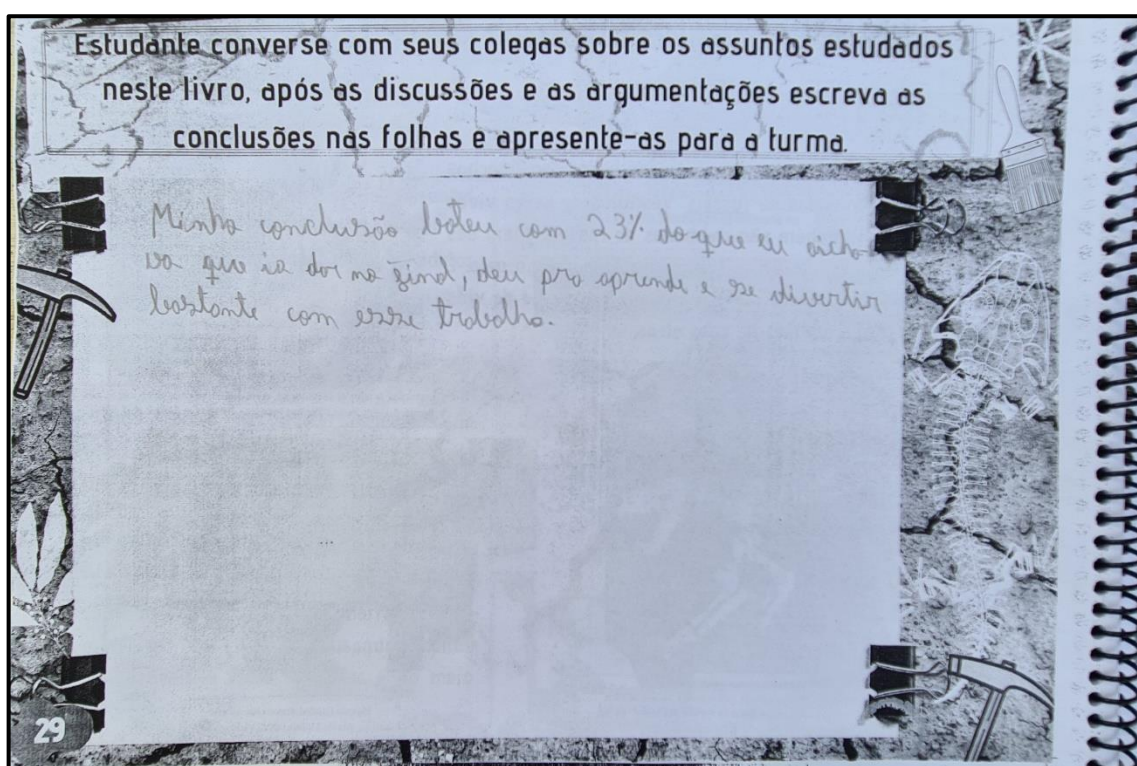 Estudante converse com seus colegas sobre os assuntos estudados
neste livro, após as discussões e as argumentações escreva as
conclusões nas folhas e apresente-as para a turma.
Minha conclusão bateu com 23% do que eu acha-
va que ia dar no final, deu pra aprende e se divertir
bastante com esse trabalho.
29